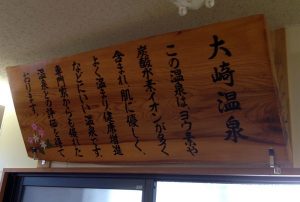 大崎温泉
この温泉はヨウ素や
炭酸水素イオンが多く
含まれ、肌に優しく、
よく温まり健康増進
などにいい温泉です。
専門家からも優れた
温泉との評価を得て
おります。